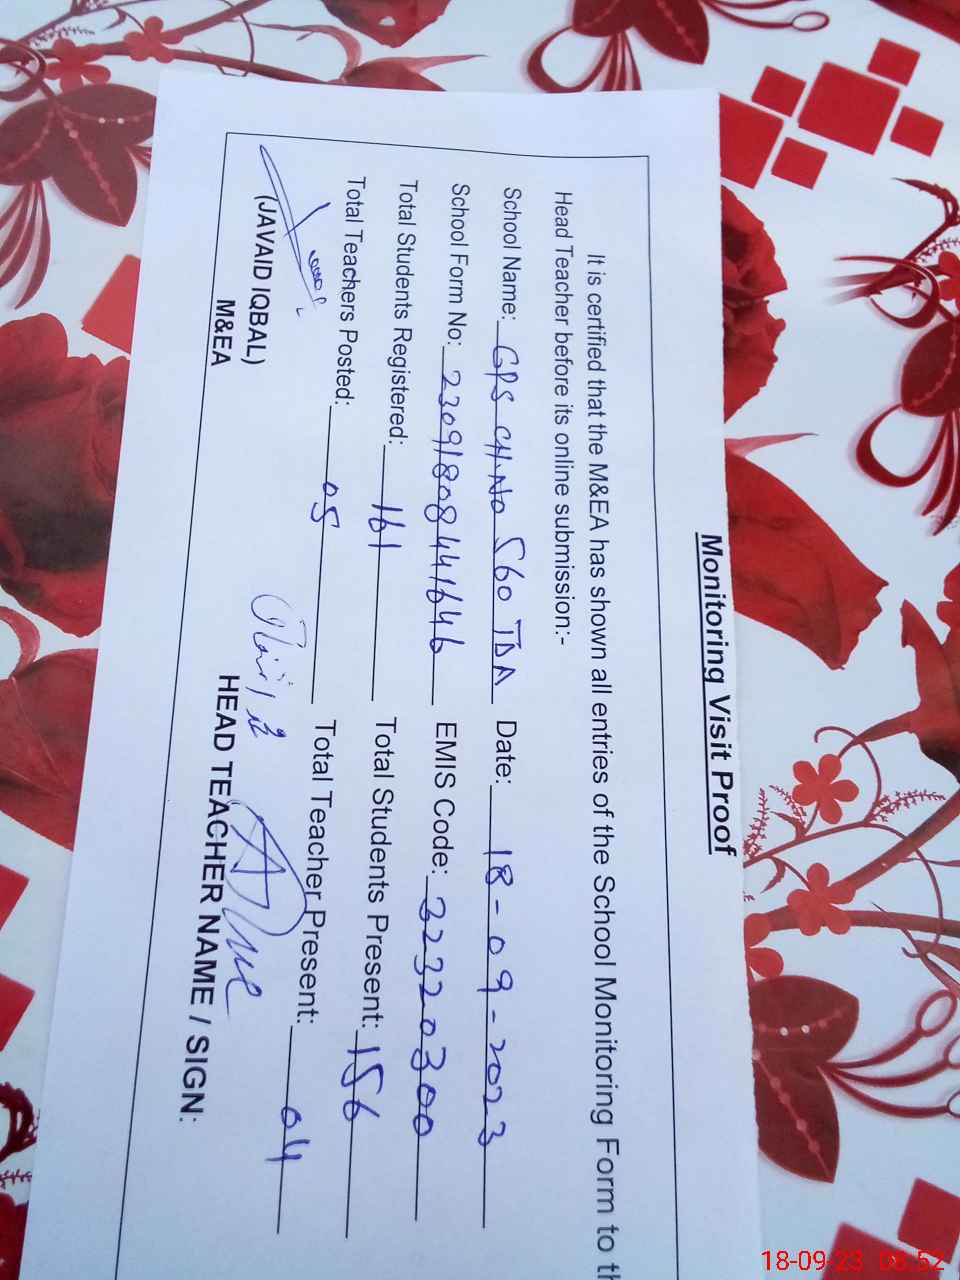 Monitoring Visit Proof
It is certified that the M&EA has shown all entries of the School Monitoring Form to th
Head Teacher before its online submission:-
School Name: GPS CH.No 560 TDA Date: 18-09-2023
School Form No: 23091808441646 EMIS Code: 32320300
Total Students Registered: 161 Total Students Present: 156
Total Teachers Posted: 05 Total Teacher Present: 04
(JAVAID IQBAL) HEAD TEACHER NAME / SIGN:
M&EA
18-09-23 08:52